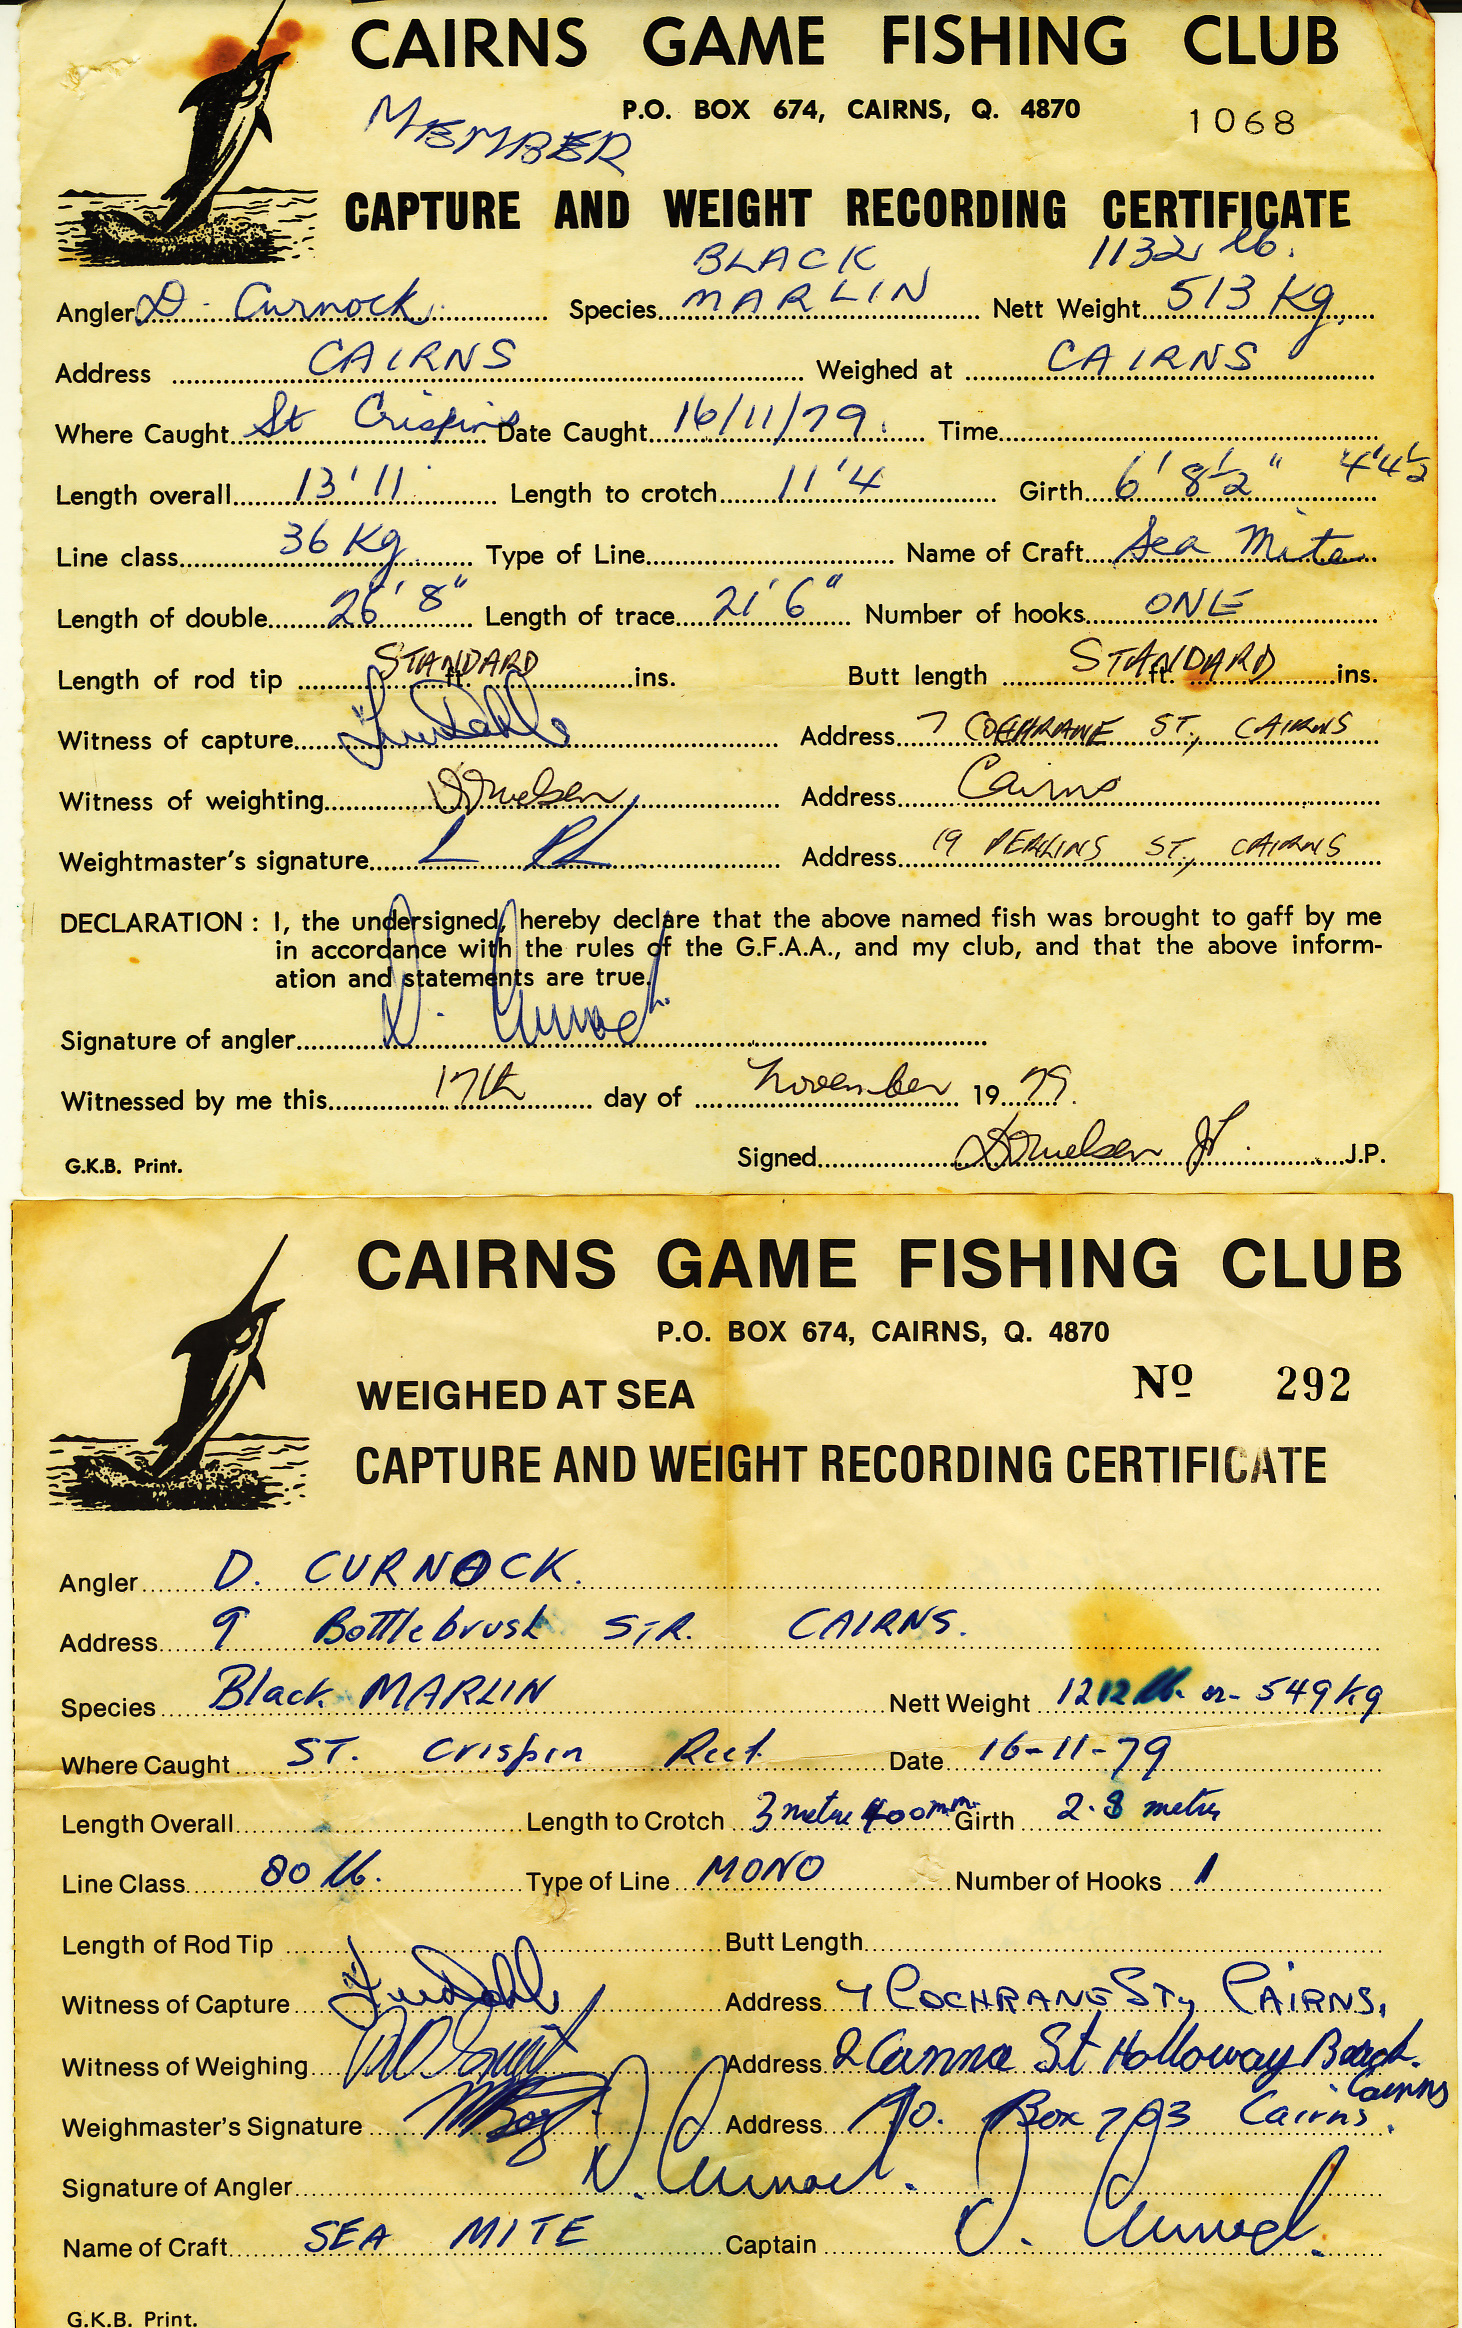 CAIRNS GAME FISHING CLUB
P.O. BOX 674, CAIRNS, Q. 4870 1068
MEMBER
CAPTURE AND WEIGHT RECORDING CERTIFICATE
BLACK 1132 lb.
Angler D. Curnock Species MARLIN Nett Weight 513 Kg.
Address CAIRNS Weighed at CAIRNS
Where Caught St Crispins Date Caught 16/11/79. Time
Length overall 13'11 Length to crotch 11'4 Girth 6' 8½" 4'4½
Line class 36 Kg Type of Line Name of Craft Sea Mite
Length of double 26' 8" Length of trace 21' 6" Number of hooks ONE
Length of rod tip STANDARD ft. ins. Butt length STANDARD ft. ins.
Witness of capture Address 7 COCHRANE ST, CAIRNS
Witness of weighting Address Cairns
Weightmaster's signature Address 19 PERKINS ST, CAIRNS
DECLARATION : I, the undersigned, hereby declare that the above named fish was brought to gaff by me
in accordance with the rules of the G.F.A.A., and my club, and that the above inform-
ation and statements are true.
Signature of angler D. Curnock
Witnessed by me this 17th day of November 19 79.
Signed J.P.
G.K.B. Print.
CAIRNS GAME FISHING CLUB
P.O. BOX 674, CAIRNS, Q. 4870
WEIGHED AT SEA Nº 292
CAPTURE AND WEIGHT RECORDING CERTIFICATE
Angler D. CURNOCK.
Address 9 Bottlebrush STR. CAIRNS.
Species Black MARLIN Nett Weight 1212 lb. or 549 kg
Where Caught ST. Crispin Reef. Date 16-11-79
Length Overall Length to Crotch 3 metre 400 m.m. Girth 2.8 metre
Line Class 80 lb. Type of Line MONO Number of Hooks 1
Length of Rod Tip Butt Length
Witness of Capture Address 7 COCHRANE ST, CAIRNS,
Witness of Weighing Address 2 Canna St Holloway Beach. Cairns
Weighmaster's Signature Address P.O. Box 703 Cairns.
Signature of Angler D. Curnock.
Name of Craft SEA MITE Captain D. Curnock.
G.K.B. Print.